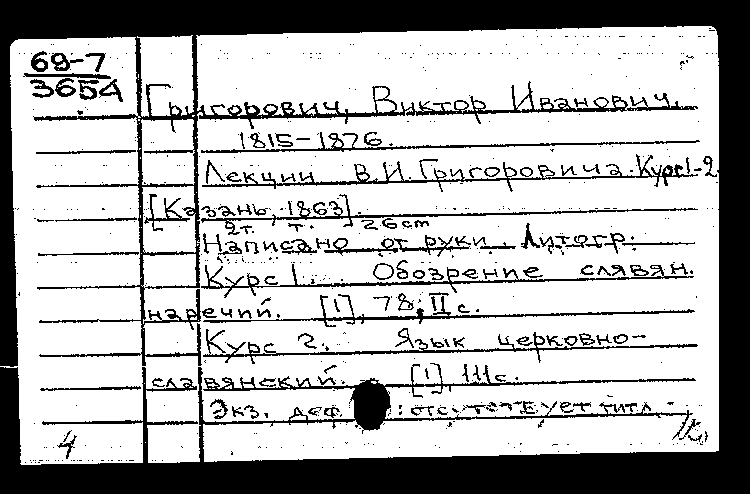 69-7
3654
Григорович, Виктор Иванович.
1815-1876.
Лекции В.И.Григоровича. Курс 1-2
[Казань, 1863].
2т. т. 26см
Написано от руки. Литогр.
Курс 1. Обозрение славян.
наречий. [1], 78, II с.
Курс 2. Язык церковно-
славянский. [1], 111с.
Экз. деф. : отсутствует титл.
4